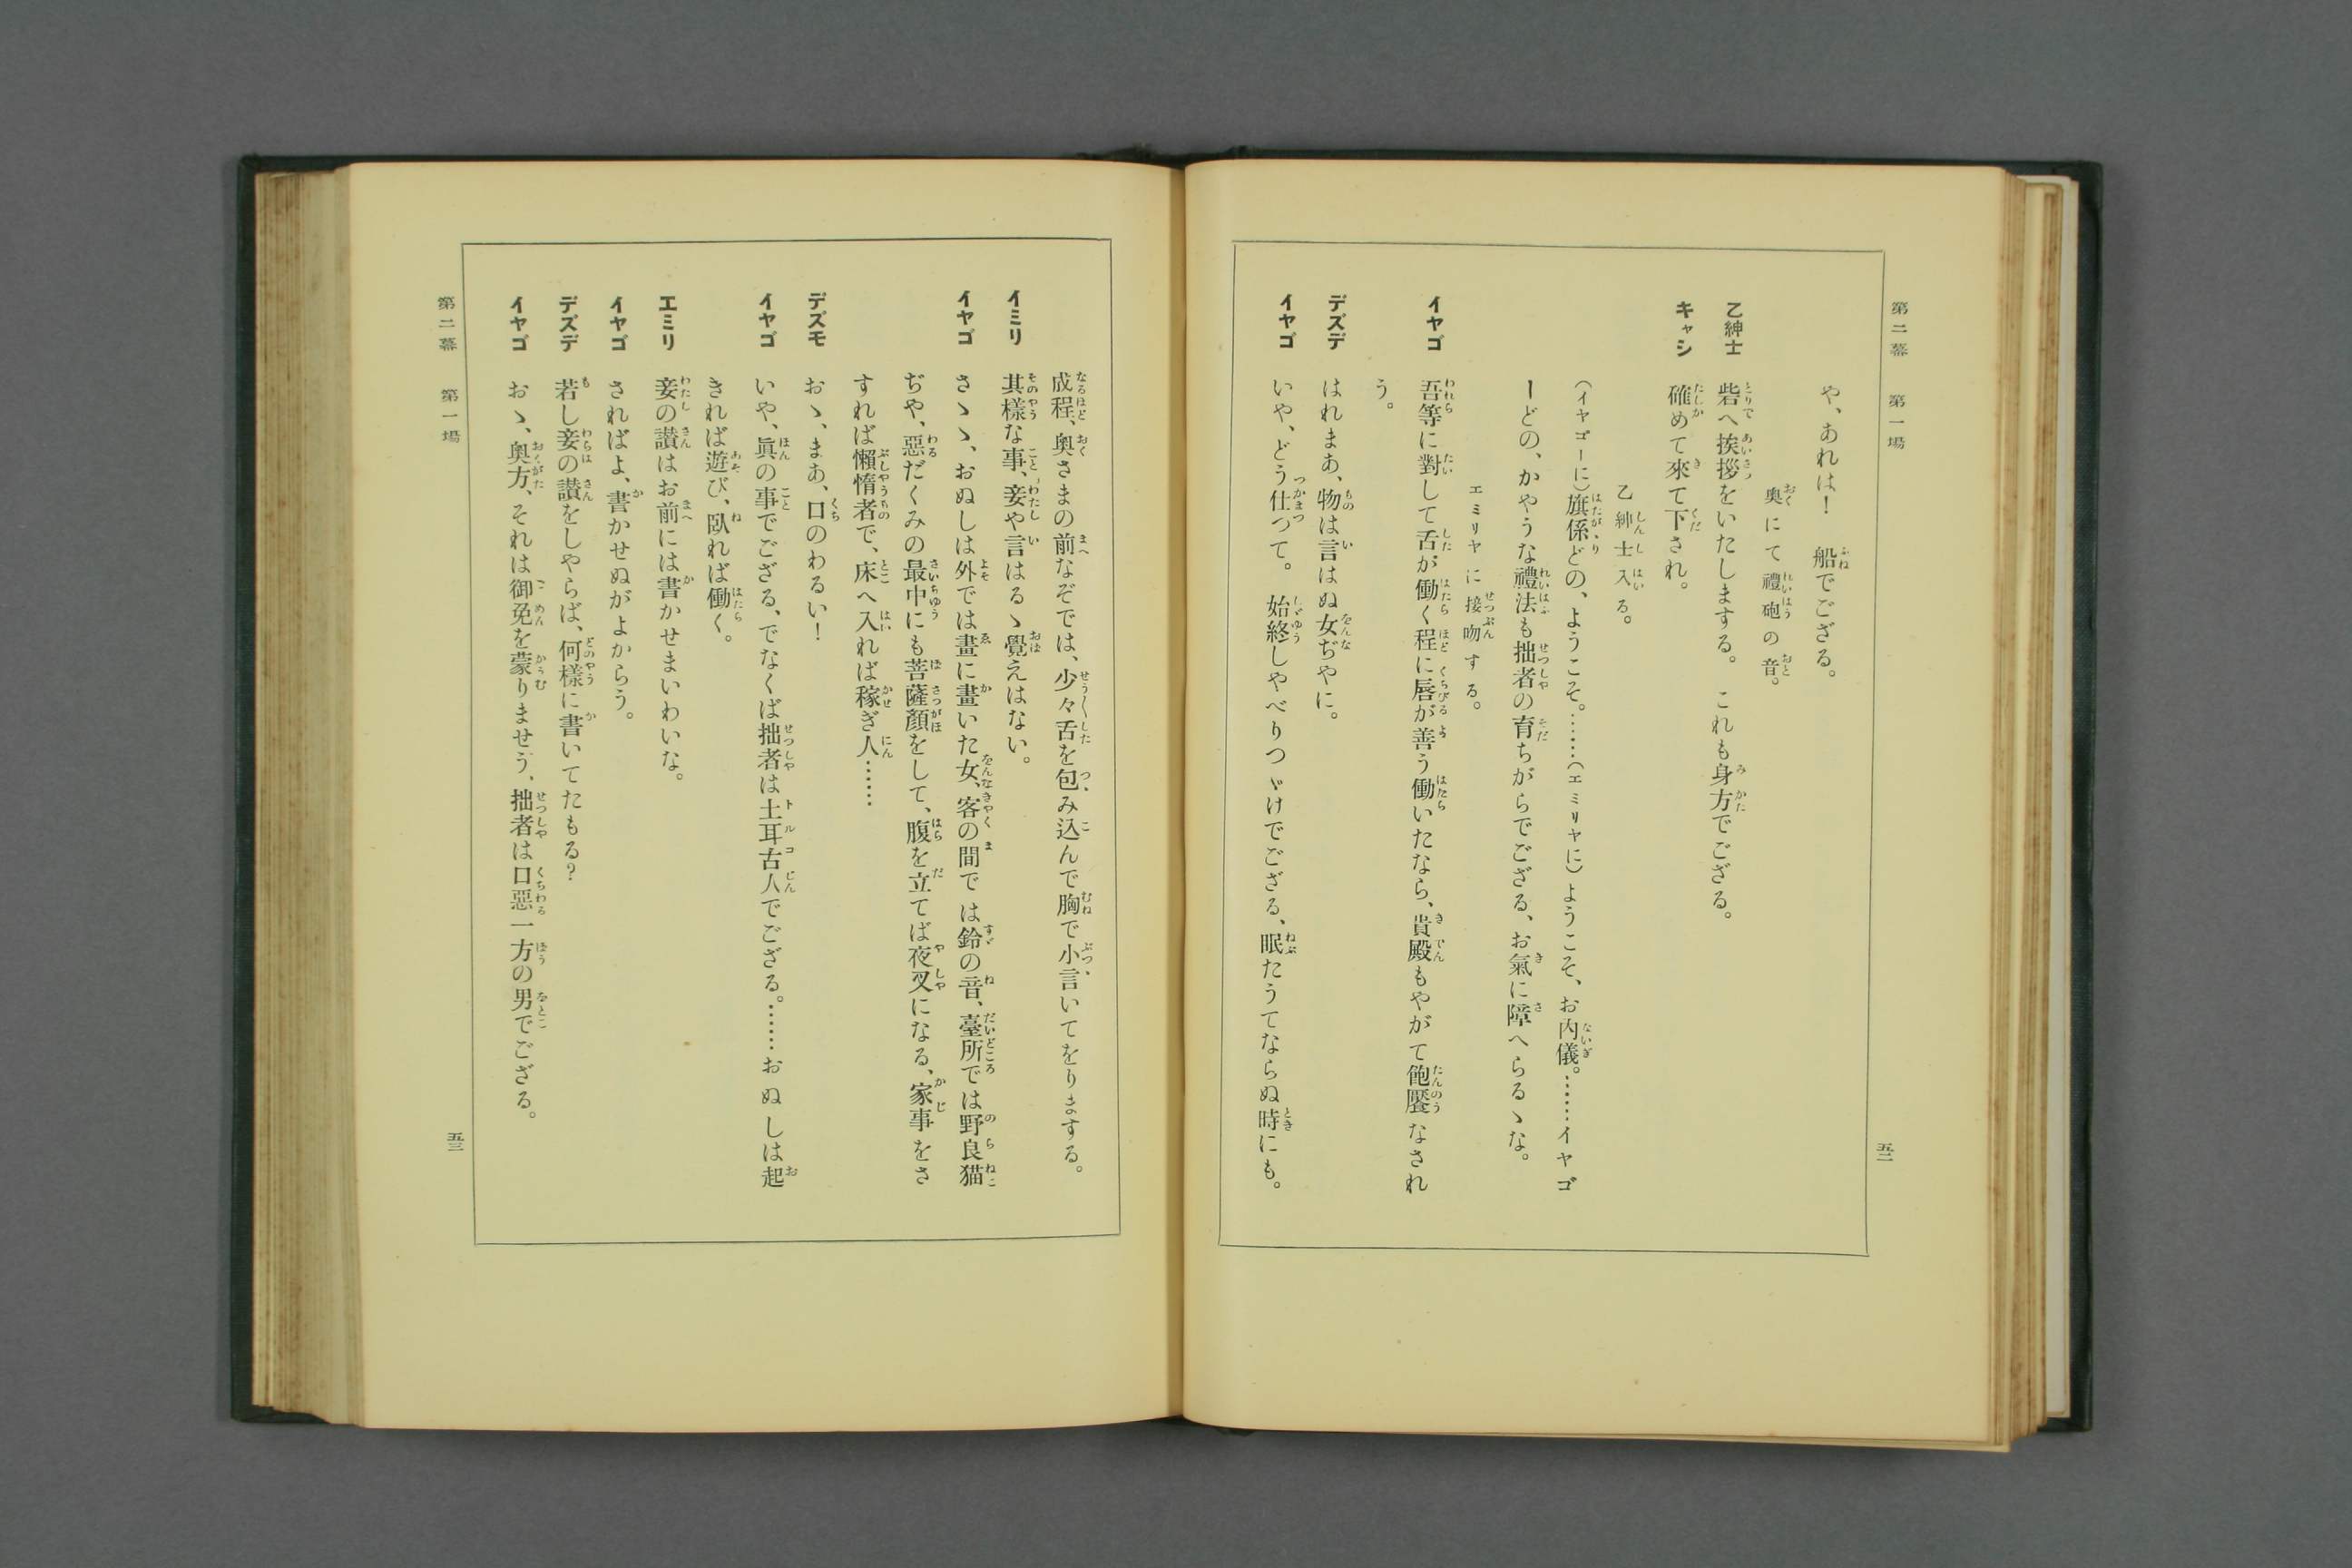 第二幕　第一場
や、あれは！　船でござる。
奧にて禮砲の音。
乙紳士　砦へ挨拶をいたしまする。　これも身方でござる。
キャシ　確めて來て下され。
乙紳士入る。
（イヤゴーに）旗係どの、ようこそ。……（エミリヤに）ようこそ、お内儀。……イヤゴ
ーどの、かやうな禮法も拙者の育ちがらでござる、お氣に障へらるゝな。
エミリヤに接吻する。
イヤゴ　吾等に對して舌が働く程に唇が善う働いたなら、貴殿もやがて飽饜なされ
う。
デズデ　はれまあ、物は言はぬ女ぢやに。
イヤゴ　いや、どう仕つて。　始終しやべりつゞけでござる、眠たうてならぬ時にも。
五二
成程、奧さまの前なぞでは、少々舌を包み込んで胸で小言いてをりまする。
イミリ　其樣な事、妾や言はるゝ覺えはない。
イヤゴ　さゝゝ、おぬしは外では畫に畫いた女、客の間では鈴の音、臺所では野良猫
ぢや、惡だくみの最中にも菩薩顏をして、腹を立てば夜叉になる、家事をさ
すれば懶惰者で、床へ入れば稼ぎ人……
デズモ　おゝ、まあ、口のわるい！
イヤゴ　いや、眞の事でござる、でなくば拙者は土耳古人でござる。……おぬしは起
きれば遊び、臥れば働く。
エミリ　妾の讃はお前には書かせまいわいな。
イヤゴ　さればよ、書かせぬがよからう。
デズデ　若し妾の讃をしやらば、何樣に書いてたもる？
イヤゴ　おゝ、奧方、それは御免を蒙りませう、拙者は口惡一方の男でござる。
第二幕　第一場
五三